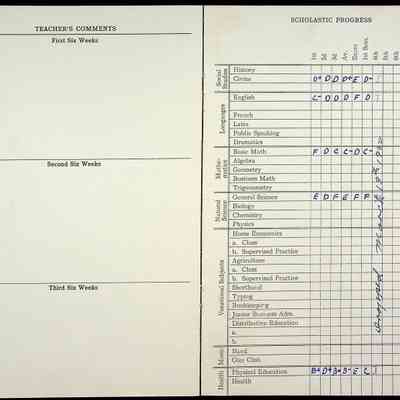 TEACHER'S COMMENTS
First Six Weeks
Second Six Weeks
Third Six Weeks
SCHOLASTIC PROGRESS
1st 2d 3d Av. Exam 1st Sem. 4th 5th 6th
Social Studies
History
Civics D+ D D D+ E D-
Languages
English C- D D D F D
French
Latin
Public Speaking
Dramatics
Mathematics
Basic Math F D C C- D C-
Algebra
Geometry
Business Math
Trigonometry
Natural Science
General Science E D F E F F
Biology
Chemistry
Physics
Vocational Subjects
Home Economics
a. Class
b. Supervised Practice
Agriculture
a. Class
b. Supervised Practice
Shorthand
Typing
Bookkeeping
Junior Business Adm.
Distributive Education
a.
b.
Music
Band
Glee Club
Health
Physical Education B+ D+ B+ B- E C
Health
Dropped March